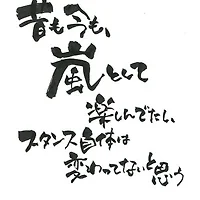 昔も今も、
嵐として
楽しんでたし、
スタンス自体は
変わってないと思う